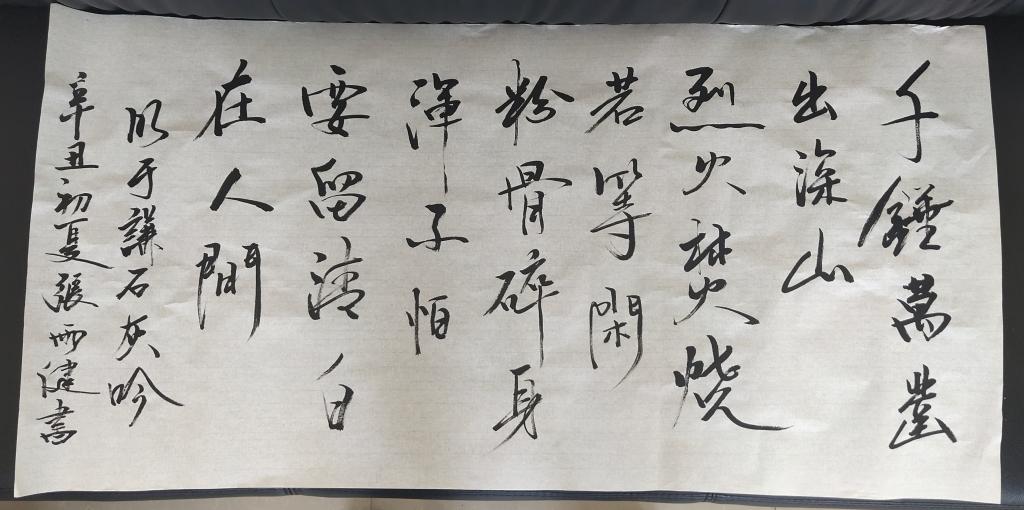 千錘萬鑿
出深山
烈火焚燒
若等閑
粉骨碎身
渾不怕
要留清白
在人間
明于謙石灰吟
辛丑初夏張雨健書